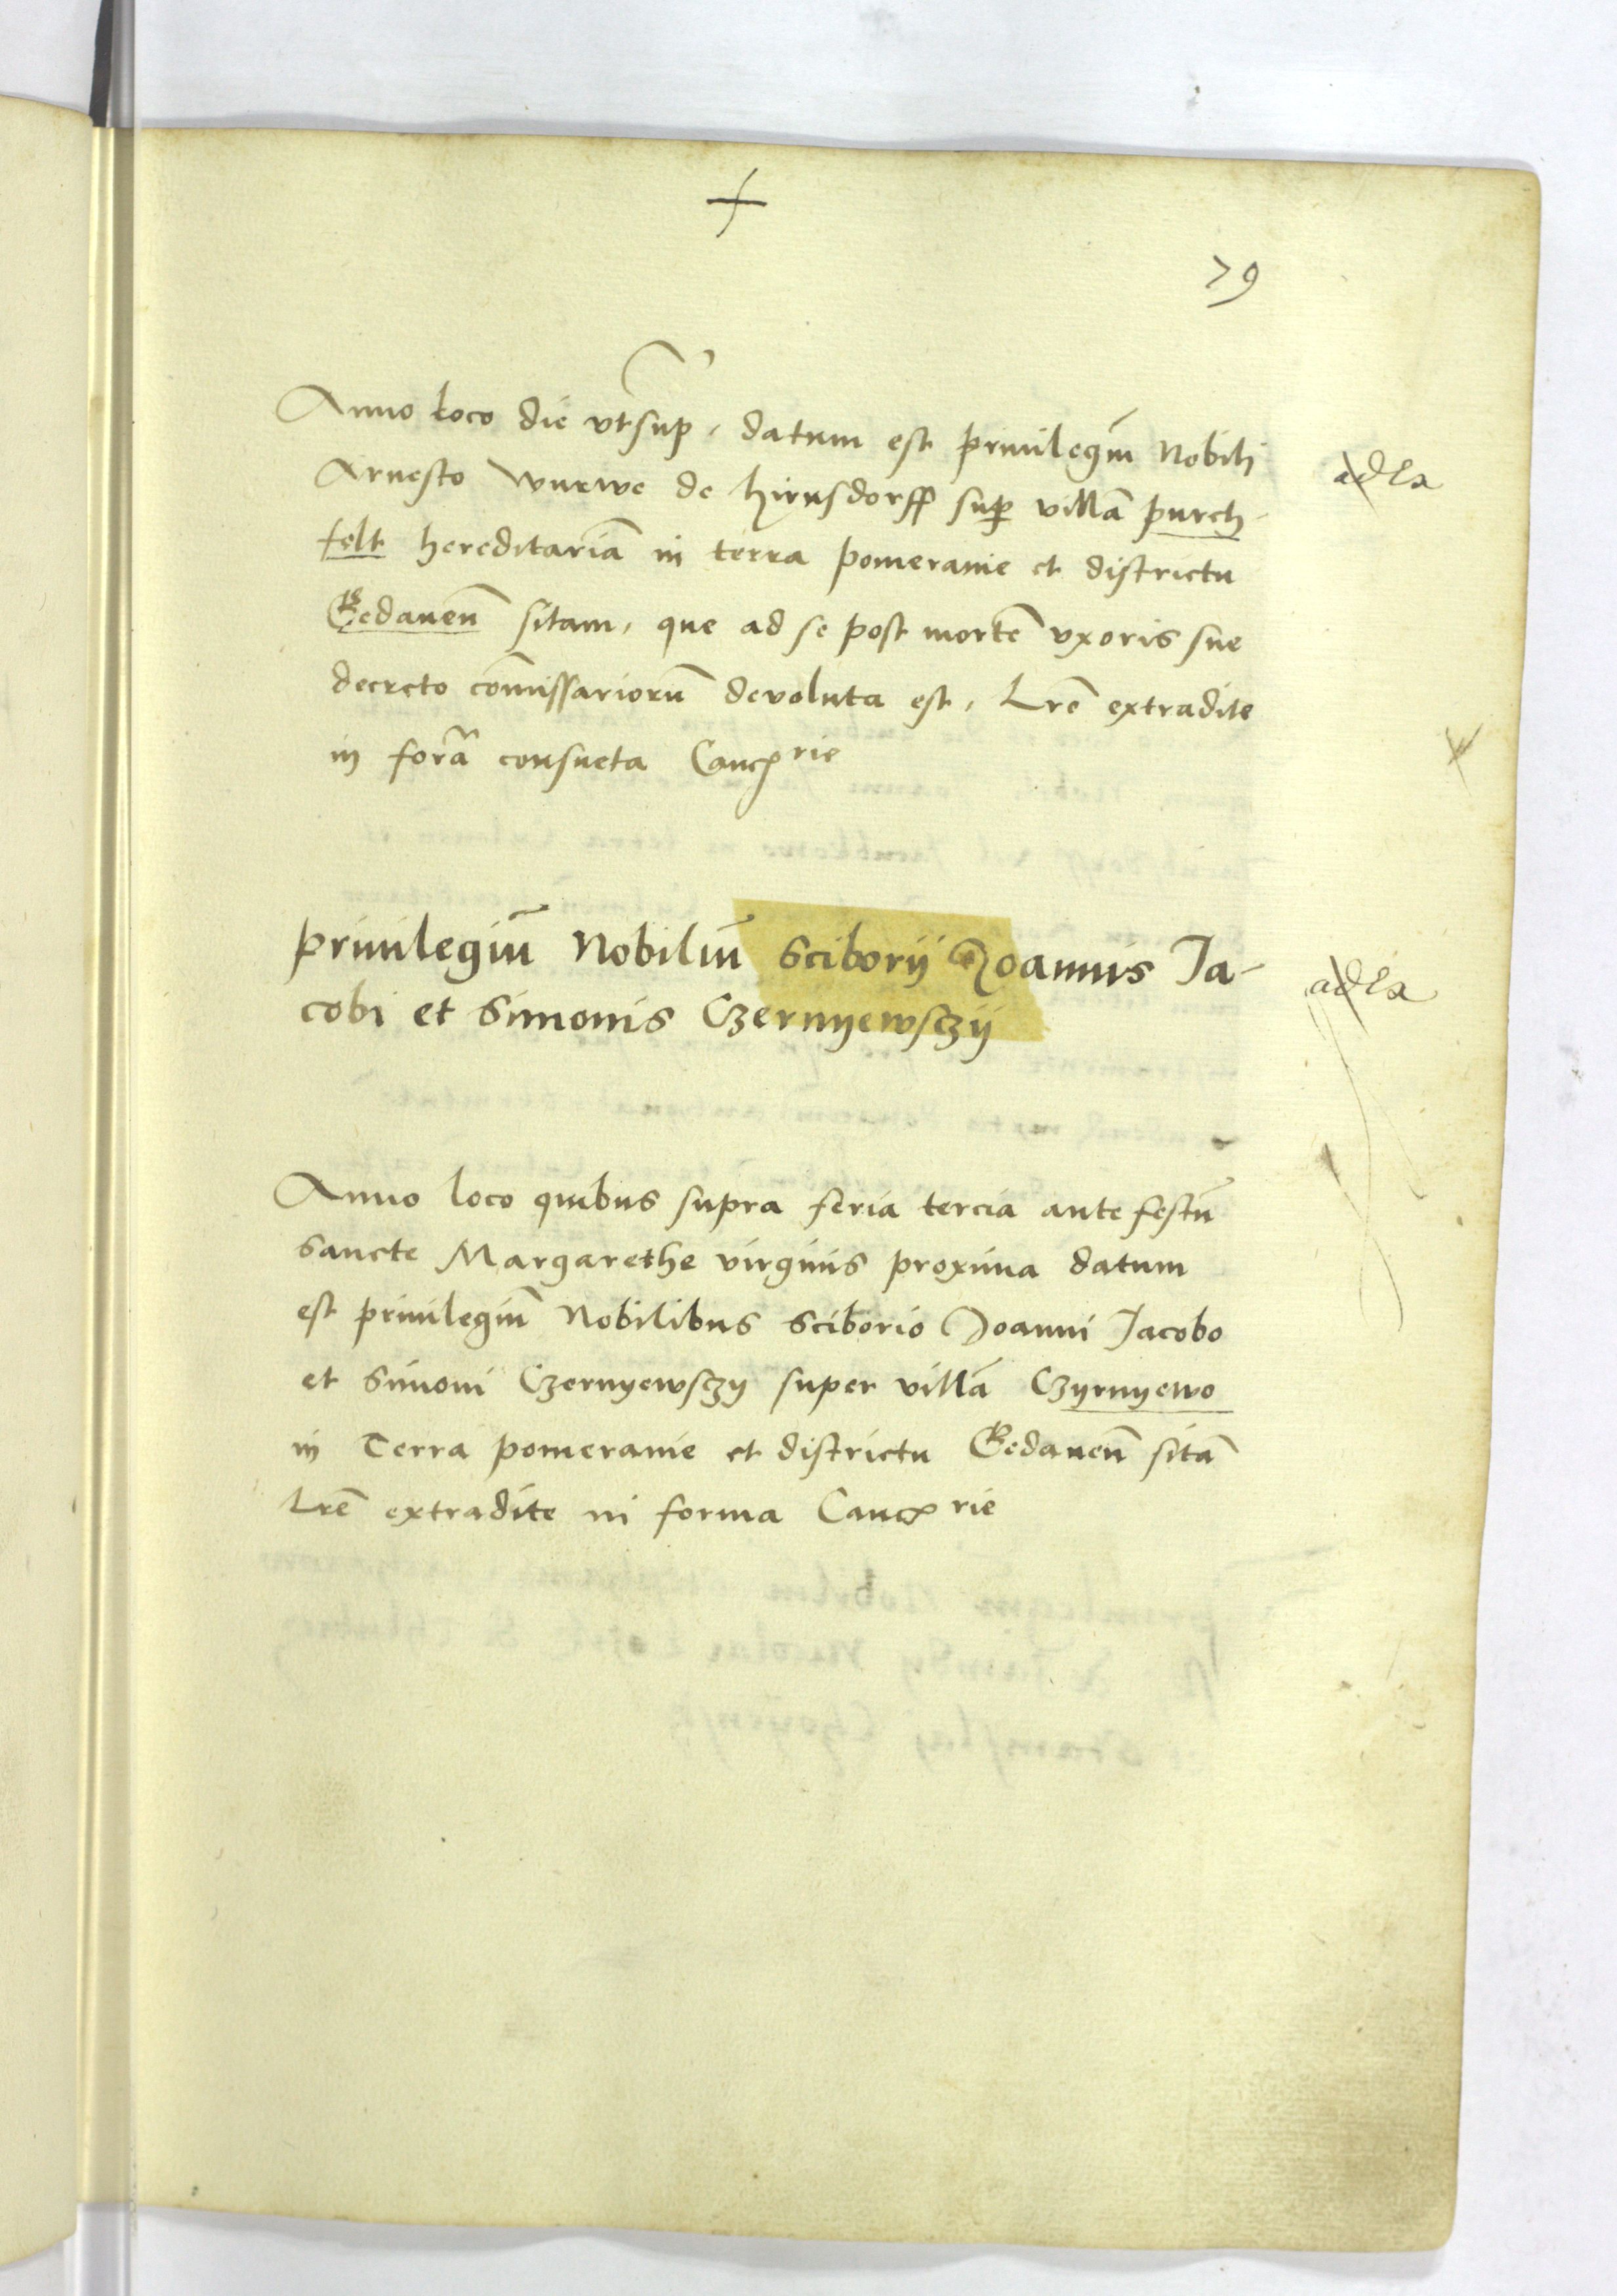 79
Anno loco die vt sup, datum est priuilegiū Nobili
Arnesto wurwe de hirnsdorff sup villā purch-
felt hereditariā in terra pomeranie et districtu
Gedaneñ sitam, que ad se post mortē vxoris sue
decreto cōmissariorū devoluta est, Lrē extradite
in forā consueta Canc rie
priuilegiū Nobiliū Sciborii Joannis Ja-
cobi et Simonis Czernyewsczij
Anno loco quibus supra feria tercia ante festū
sancte Margarethe virginis proxima datum
est priuilegiū Nobilibus Sciborio Joanni Jacobo
et Simoni Czernyewsczy super villā Czyrnyewo
in Terra pomeranie et districtu Gedaneñ sitā
Lrē extradite in forma Canc rie